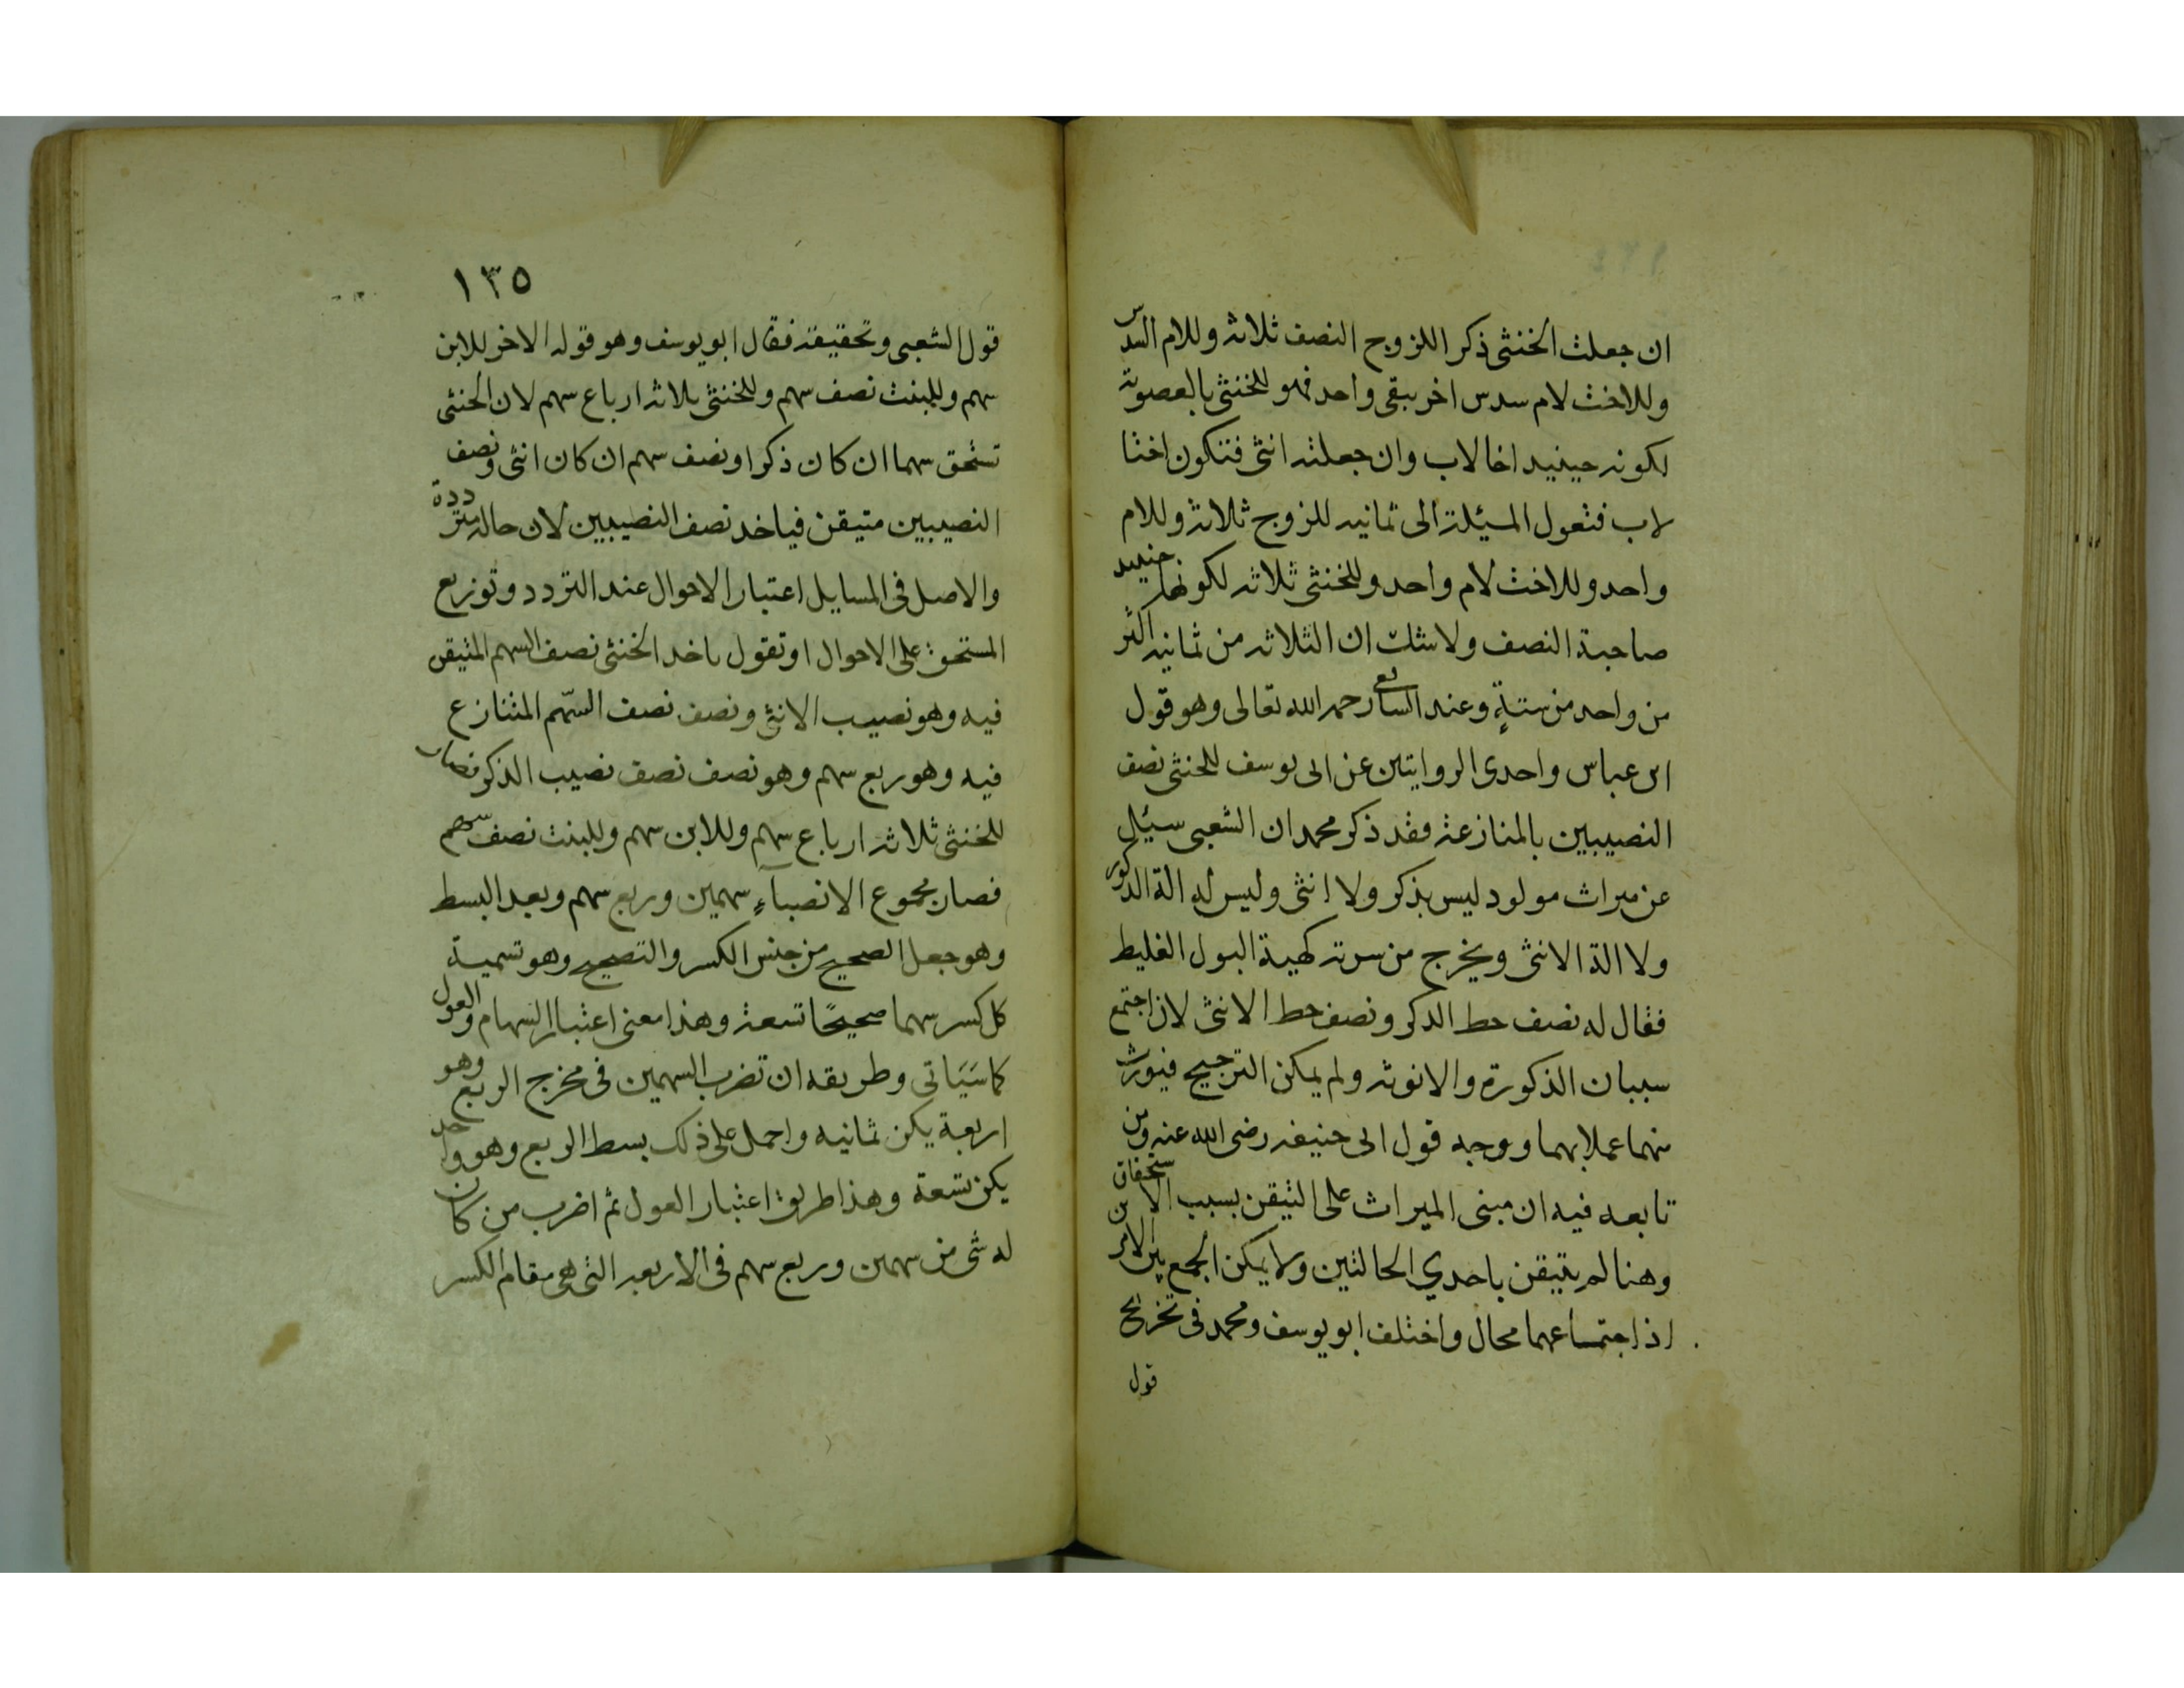 ان جعلت الخنثى ذكرا للزوج النصف ثلاثه وللام السدس
وللاخت لام سدس اخر يبقى واحد فهو للخنثى بالعصوبة
لكونه حينيد اخا لاب وان جعلته انثى فتكون اختا
لاب فتعول المسئلة الى ثمانيه للزوج ثلاثة وللام
واحد وللاخت لام واحد وللخنثى ثلاثه لكونها حنييد
صاحبة النصف ولا شك ان الثلاثه من ثمانيه اكثر
من واحد من ستة وعند رحمه الله تعالى وهو قول
ابن عباس واحدى الروايتين عن ابى يوسف للخنثى نصف
النصيبين بالمنازعة فقد ذكر محمد ان الشعبى سيئل
عن ميراث مولود ليس بذكر ولا انثى وليس له الة الذكور
ولا الة الانثى ويخرج من سرته كهيئة البول الغليط
فقال له نصف حط الدكر ونصف حط الانثى لان اجتمع
سببان الذكورة والانوثه ولم يمكن الترجيح فيورث
منهما عملا بهما ووجه قول ابى حنيفه رضى الله عنه ومن
تابعه فيه ان مبنى الميراث على التيقن بسبب الاستحقاق
وهنا لم يتيقن باحدي الحالتين ولا يمكن الجمع بين الامرين
اذ اجتماعهما محال واختلف ابو يوسف ومحمد فى تخريج
قول
١٣٥
قول الشعبى وتحقيقه فقال ابو يوسف وهو قوله الاخر للابن
سهم وللبنت نصف سهم وللخنثى ثلاثه ارباع سهم لان الخنثى
تستحق سهما ان كان ذكرا ونصف سهم ان كان انثى ونصف
النصيبين متيقن فياخد نصف النصيبين لان حاله مترددة
والاصل فى المسايل اعتبار الاحوال عند التردد وتوزيع
المستحق على الاحوال او تقول ياخد الخنثى نصف السهم المتيقن
فيه وهو نصيب الانثى ونصف نصف السّهم المتنازع
فيه وهو ربع سهم وهو نصف نصف نصيب الذكر فصار
للخنثى ثلاثه ارباع سهم وللابن سهم وللبنت نصف سهم
فصار مجموع الانصباءِ سهمين وربع سهم وبعد البسط
وهو جعل الصحيح من جنس الكسر والتصحيح وهو تسمية
كل كسر سهما صحيحًا تسعة وهذا معنى اعتبار السهام والعول
كما سَيَاتى وطريقه ان تضرب السهمين فى مخرج الربع وهو
اربعة يكن ثمانيه واحمل على ذلك بسط الربع وهو واحد
يكن تسعة وهذا طريق اعتبار العول ثم اضرب من كان
له شى من سهمين وربع سهم فى الاربعه التى هى مقام الكسر